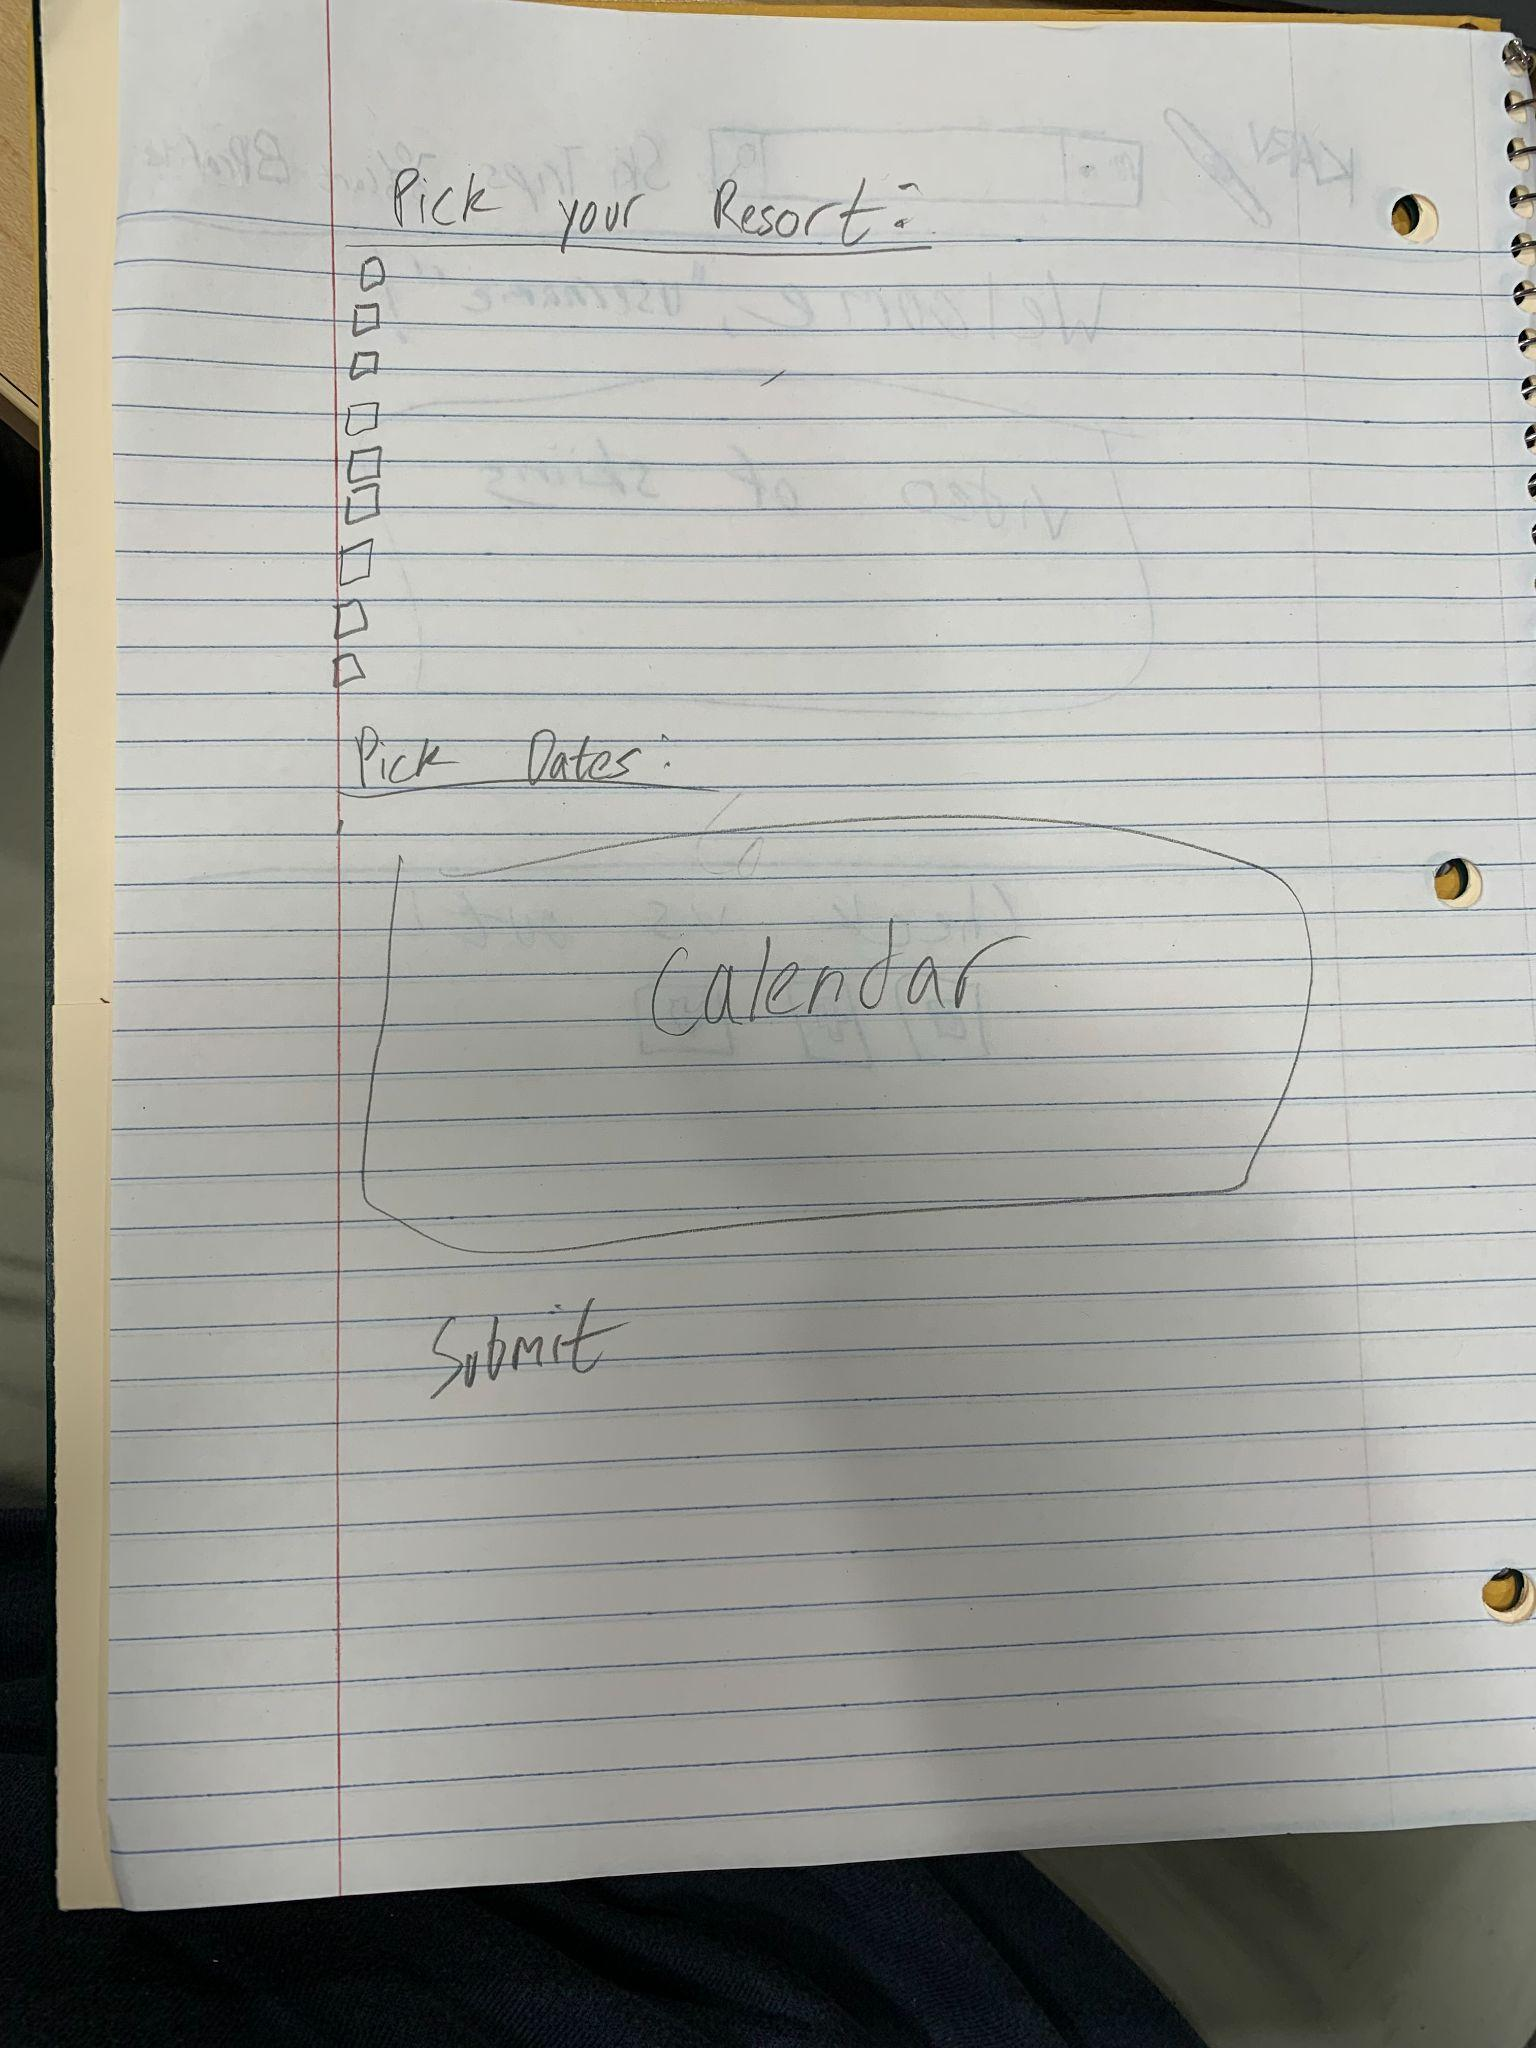 Pick your Resort:
Pick Dates:
Calendar
Submit